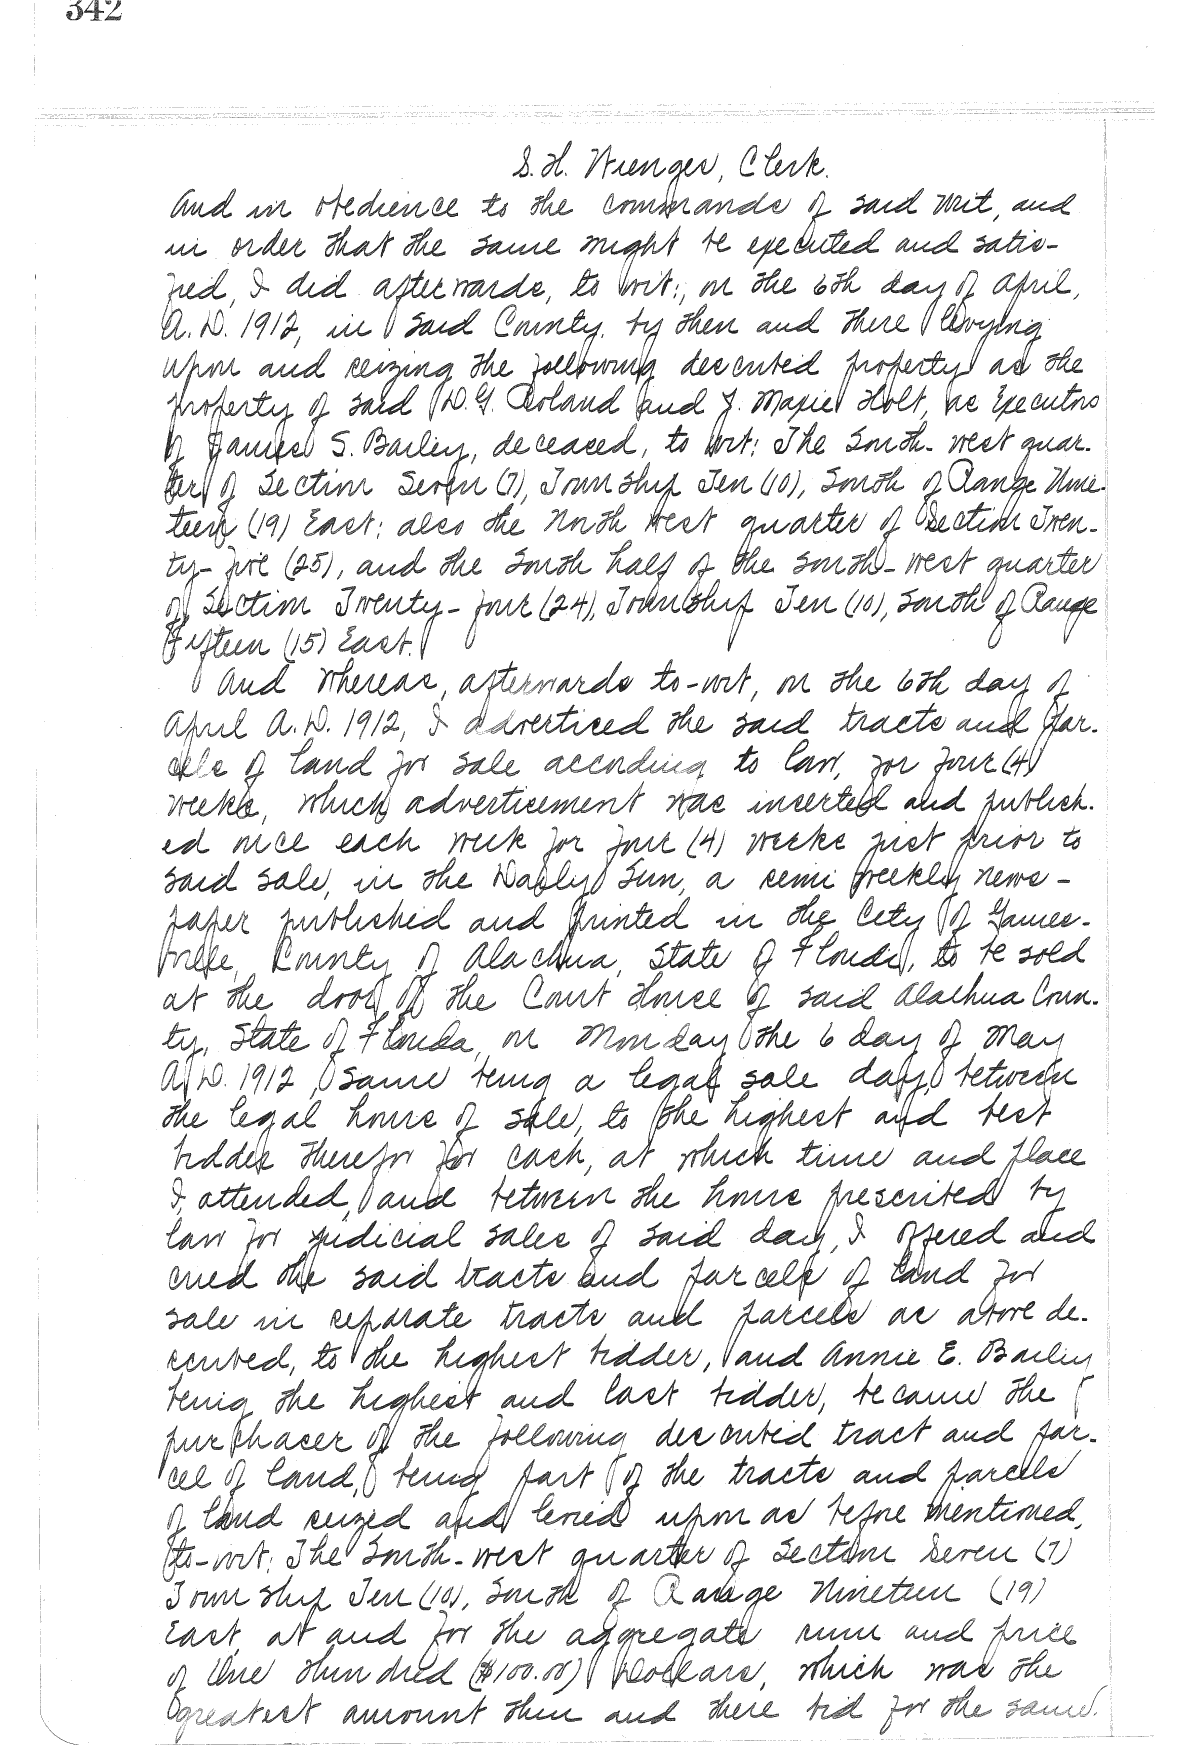 342
S. H. Wienges, Clerk.
And in obedience to the commands of said writ, and
in order that the same might be executed and satis-
fied, I did afterwards, to wit:, on the 6th day of April,
A. D. 1912, in said County, by then and there levying
upon and seizing the following described property as the
property of said D. G. Roland and J. Maxie Holt, as Executors
of James S. Bailey, deceased, to wit: The South-west quar-
ter of Section Seven (7), Township Ten (10), South of Range Nine-
teen (19) East; also the North west quarter of Section Twen-
ty-five (25), and the South half of the South-west quarter
of Section Twenty-four (24), Township Ten (10), South of Range
Fifteen (15) East.
And whereas, afterwards to-wit, on the 6th day of
April A. D. 1912, I advertised the said tracts and par-
cels of land for sale according to law, for four (4)
weeks, which advertisement was inserted and publish-
ed once each week for four (4) weeks just prior to
said sale, in the Daily Sun, a semi weekly news-
paper published and printed in the City of Gaines-
ville, County of Alachua, State of Florida, to be sold
at the door of the Court House of said Alachua Coun-
ty, State of Florida, on Monday the 6 day of May
A. D. 1912, same being a legal sale day, between
the legal hours of sale, to the highest and best
bidder therefor for cash, at which time and place
I attended, and between the hours prescribed by
law for judicial sales of said day, I offered and
cried the said tracts and parcels of land for
sale in separate tracts and parcels as above de-
scribed, to the highest bidder, and Annie E. Bailey
being the highest and last bidder, became the
purchaser of the following described tract and par-
cel of land, being part of the tracts and parcels
of land seized and levied upon as before mentioned,
to-wit: The South-west quarter of Section Seven (7)
Township Ten (10), South of Range Nineteen (19)
East, at and for the aggregate sum and price
of One Hundred ($100.00) Dollars, which was the
greatest amount then and there bid for the same.